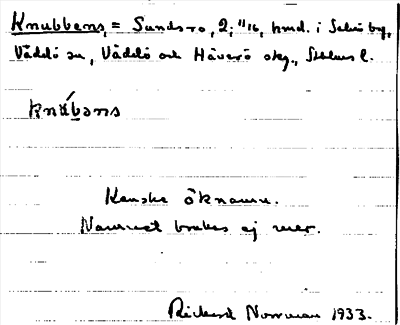 Knubbens, = Sundsro, 2; 11/16, hmd. i Senneby,
Väddö sn, Väddö och Häverö skg., Sthlms l.
knúbəns
Kanske öknamn.
Namnet brukas ej mer.
Rickard Norrman 1933.